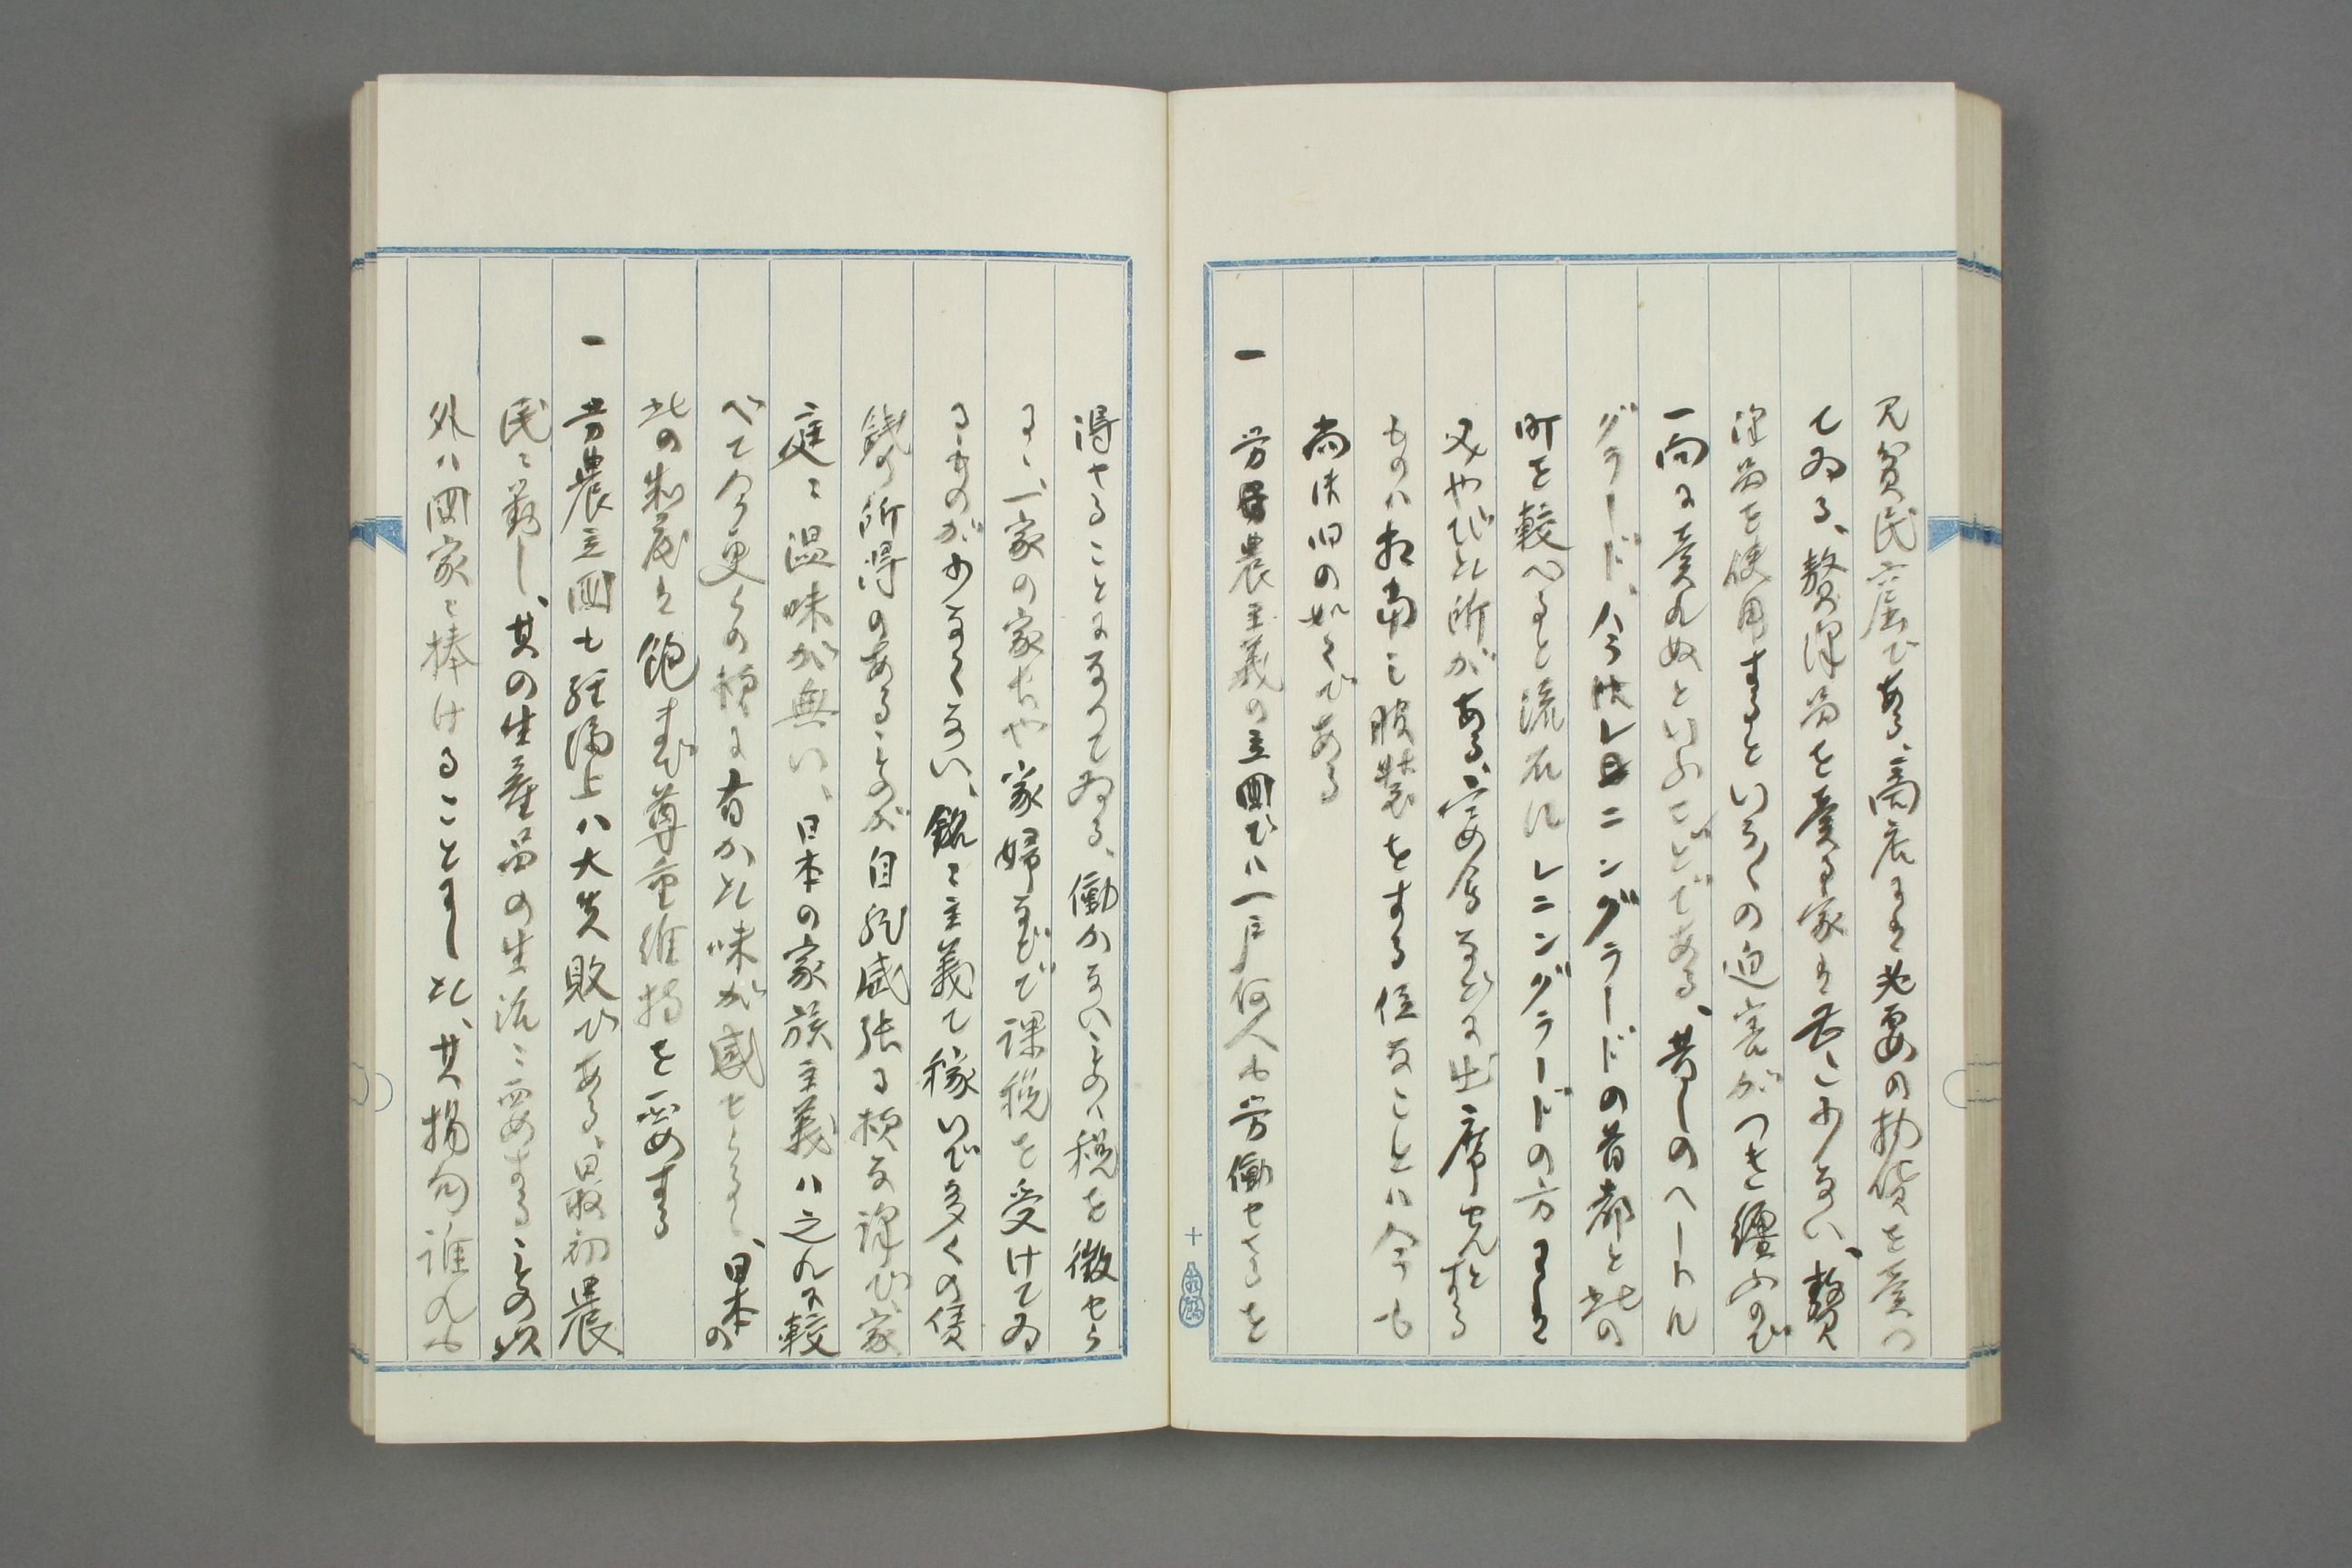 又貧民窟である、商店にも必要の物貨を売つ
てゐる、贅澤品を売る家も至て少ない、贅
澤品を使用するといろ〱の迫害がつき纏ふので
一向に売れぬといふことである、昔しのペートル
グラード、今はレニングラードの昔都と此の
町を較べると流石にレニングラードの方にも
みやびた所がある、宴会などに出席せんとする
ものハ相當に服装をする位なことハ今も
尚ほ旧の如くである
一 労農主義の立国でハ一戸何人も労働せざるを
得ざることになつてゐる、働かないものハ税を徴せら
る、一家の家女や家婦などで課税を受けてゐ
るものが少なくない、銘々主義で稼いで多くの賃
銭の所得のあるものが自然威張る様な譯で家
庭に温味が無い、日本の家族主義ハ之れに較
べて今更らの様に有かた味が感せらるゝ、日本の
此の制度を飽まで尊重維持を要する
一 労農立国も経済上ハ大失敗である、最初農
民に對し、其の生産品の生活に要するもの以
外ハ国家に捧けることにした、其揚句誰れも
十